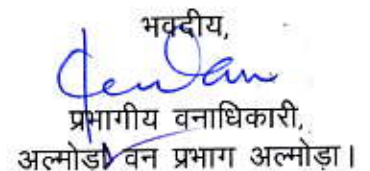 भवदीय,
प्रभागीय वनाधिकारी,
अल्मोड़ा वन प्रभाग अल्मोड़ा।